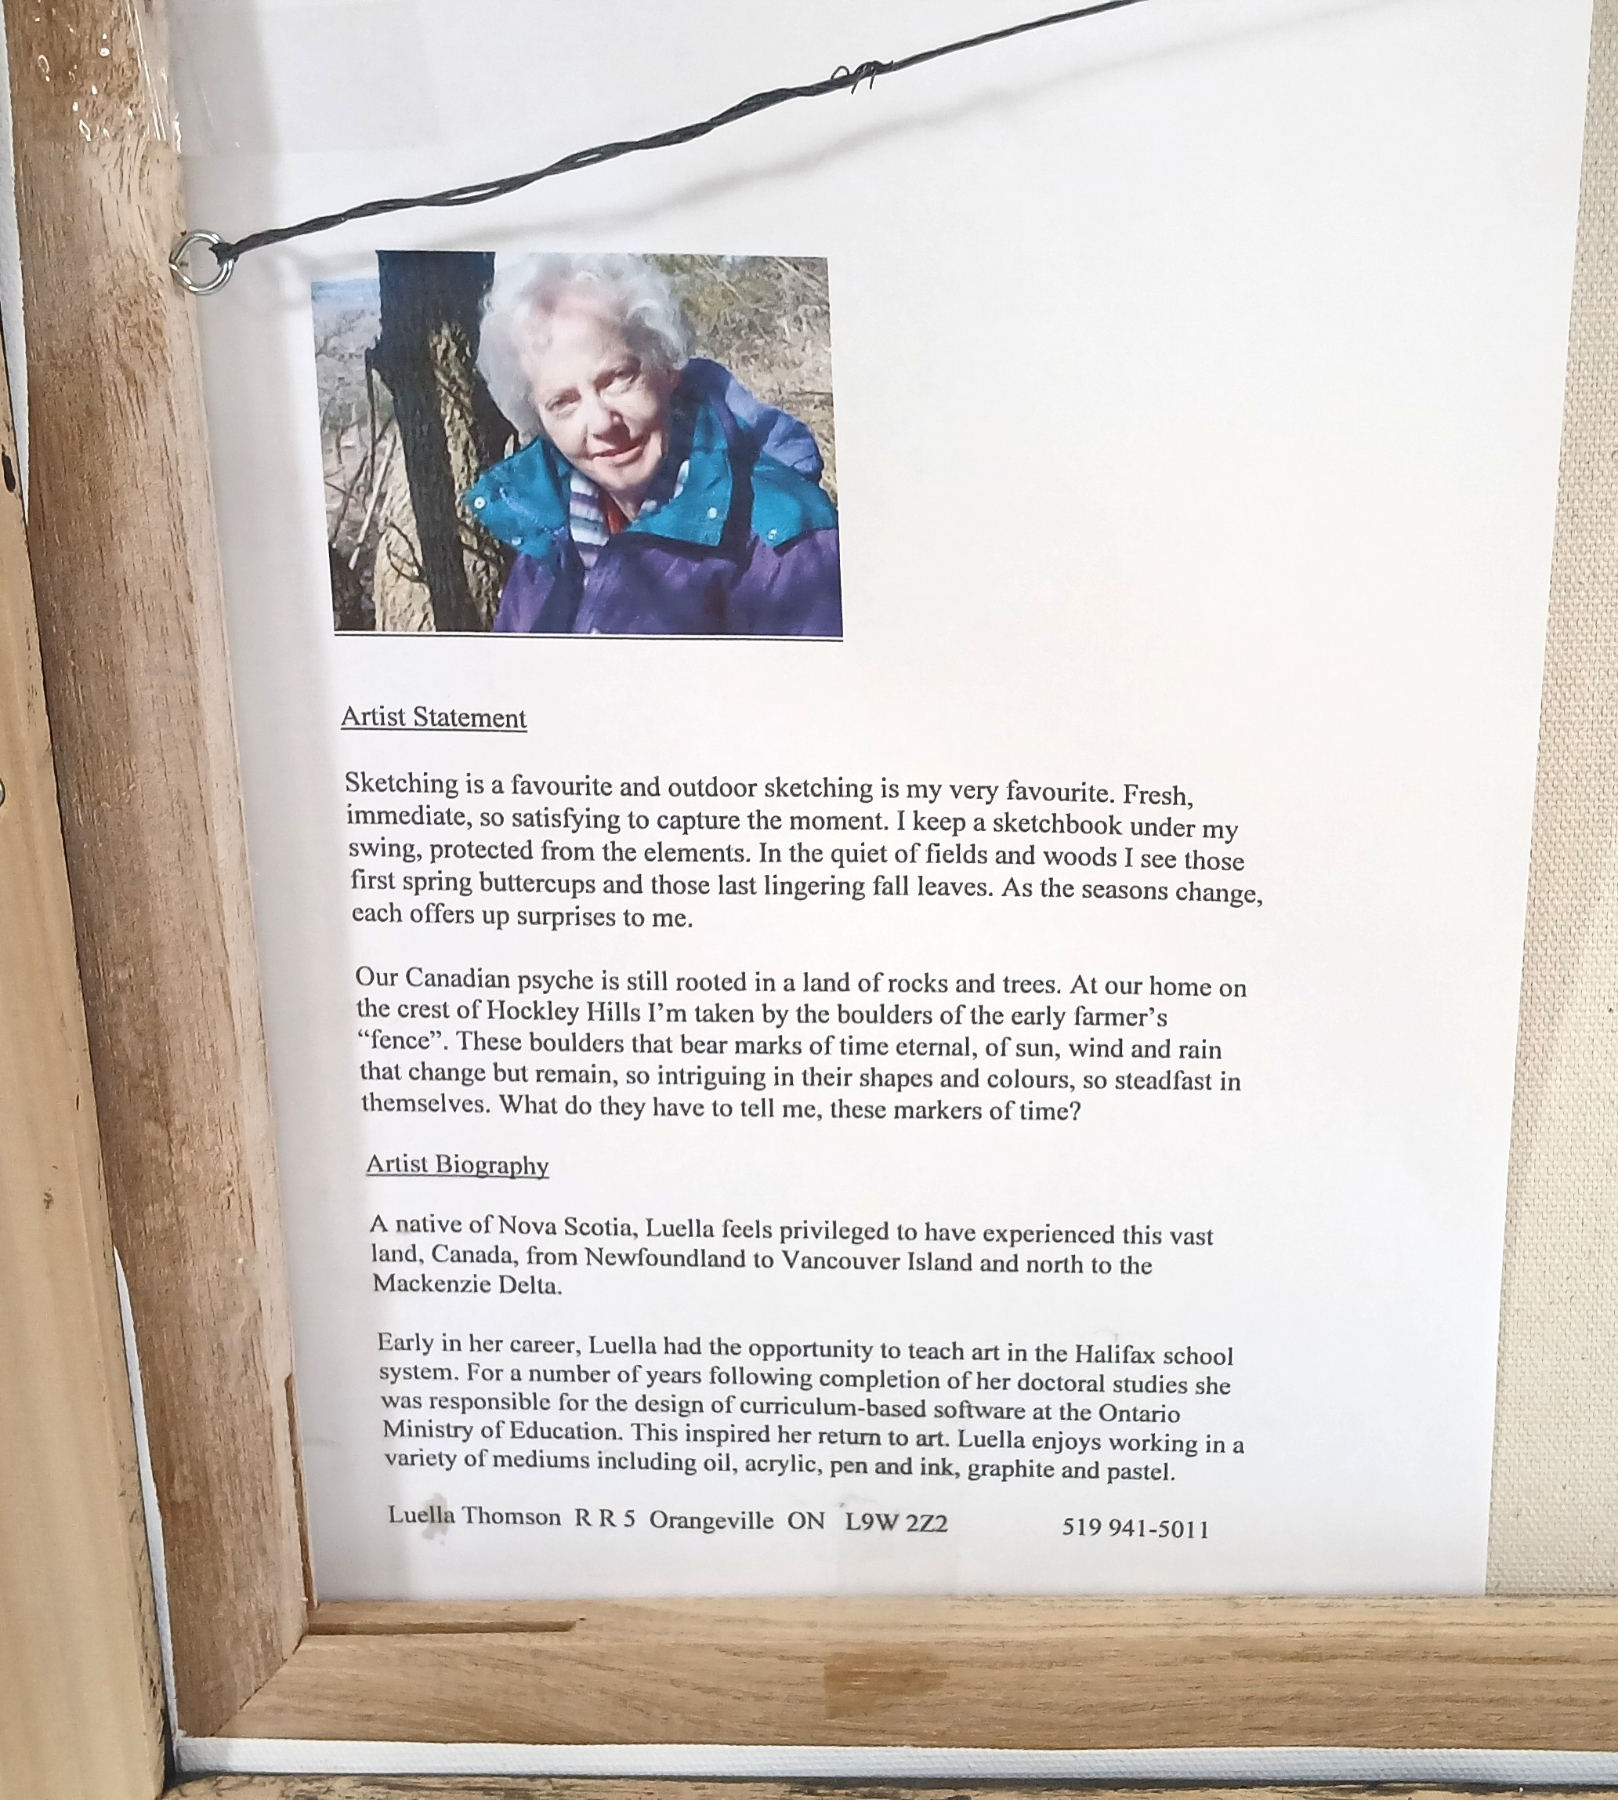 Artist Statement
Sketching is a favourite and outdoor sketching is my very favourite. Fresh,
immediate, so satisfying to capture the moment. I keep a sketchbook under my
swing, protected from the elements. In the quiet of fields and woods I see those
first spring buttercups and those last lingering fall leaves. As the seasons change,
each offers up surprises to me.
Our Canadian psyche is still rooted in a land of rocks and trees. At our home on
the crest of Hockley Hills I’m taken by the boulders of the early farmer’s
“fence”. These boulders that bear marks of time eternal, of sun, wind and rain
that change but remain, so intriguing in their shapes and colours, so steadfast in
themselves. What do they have to tell me, these markers of time?
Artist Biography
A native of Nova Scotia, Luella feels privileged to have experienced this vast
land, Canada, from Newfoundland to Vancouver Island and north to the
Mackenzie Delta.
Early in her career, Luella had the opportunity to teach art in the Halifax school
system. For a number of years following completion of her doctoral studies she
was responsible for the design of curriculum-based software at the Ontario
Ministry of Education. This inspired her return to art. Luella enjoys working in a
variety of mediums including oil, acrylic, pen and ink, graphite and pastel.
Luella Thomson R R 5 Orangeville ON L9W 2Z2 519 941-5011